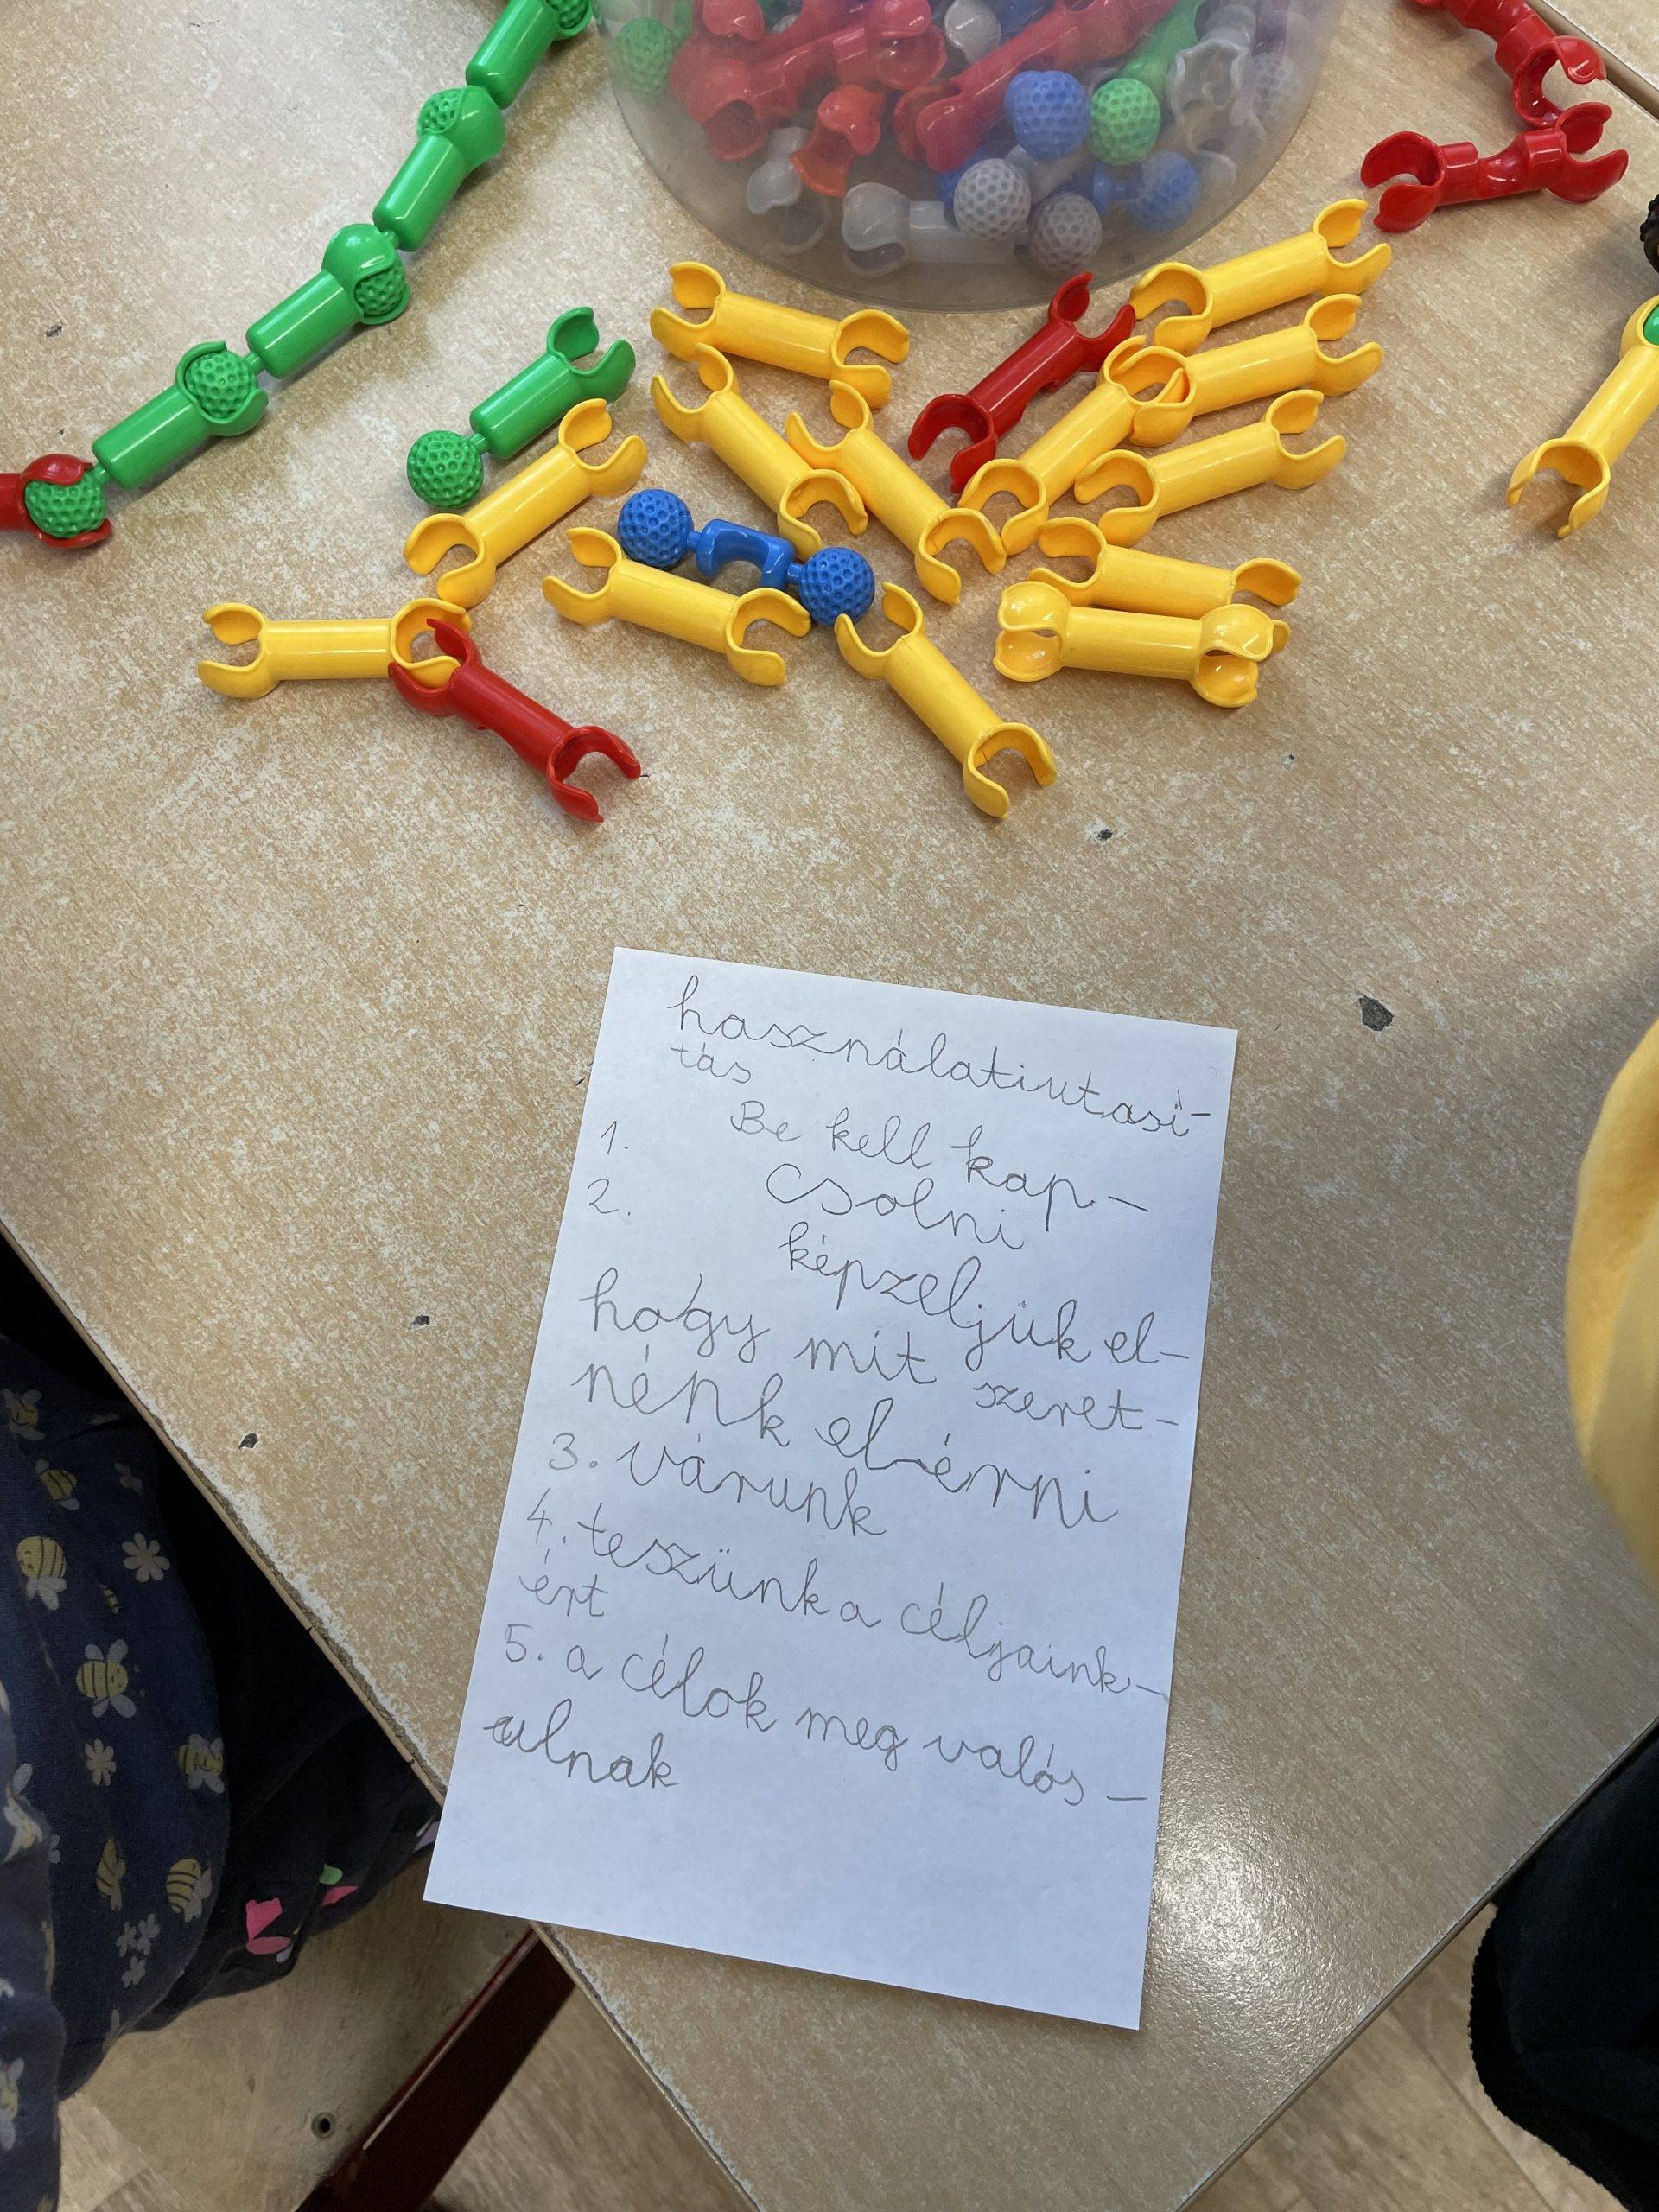 használatiutasí-
tás
1. Be kell kap-
2. csolni
képzeljük el-
hogy mit szeret-
nénk el-érni
3. várunk
4. teszünk a céljaink-
ért
5. a célok meg valós-
ulnak